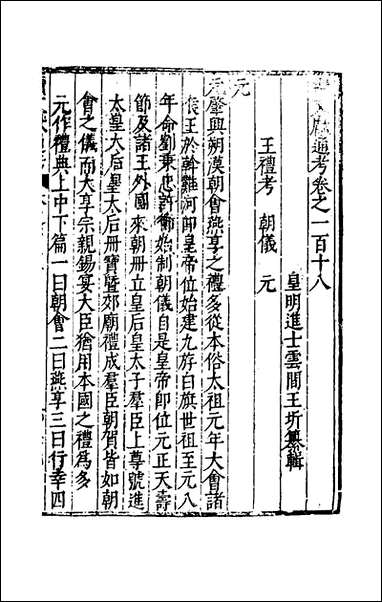 通考卷之一百十八
皇明進士雲間王圻纂輯
王禮考 朝儀 元
元
元肇興朔漠朝會燕享之禮多從本俗太祖元年大會諸
侯王於斡難河即皇帝位始建九斿白旗世祖至元八
年命劉秉忠許衡始制朝儀自是皇帝即位元正天壽
節及諸王外國來朝冊立皇后皇太子羣臣上尊號進
太皇太后皇太后冊寶暨郊廟禮成羣臣朝賀皆如朝
會之儀而大享宗親錫宴大臣猶用本國之禮為多
元作禮典上中下篇一曰朝會二曰燕享三曰行幸四